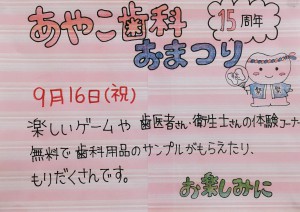 あやこ歯科 15周年
おまつり
9月16日(祝)
楽しいゲームや 歯医者さん・衛生士さんの体験コーナー
無料で 歯科用品のサンプルがもらえたり、
もりだくさんです。
お楽しみに